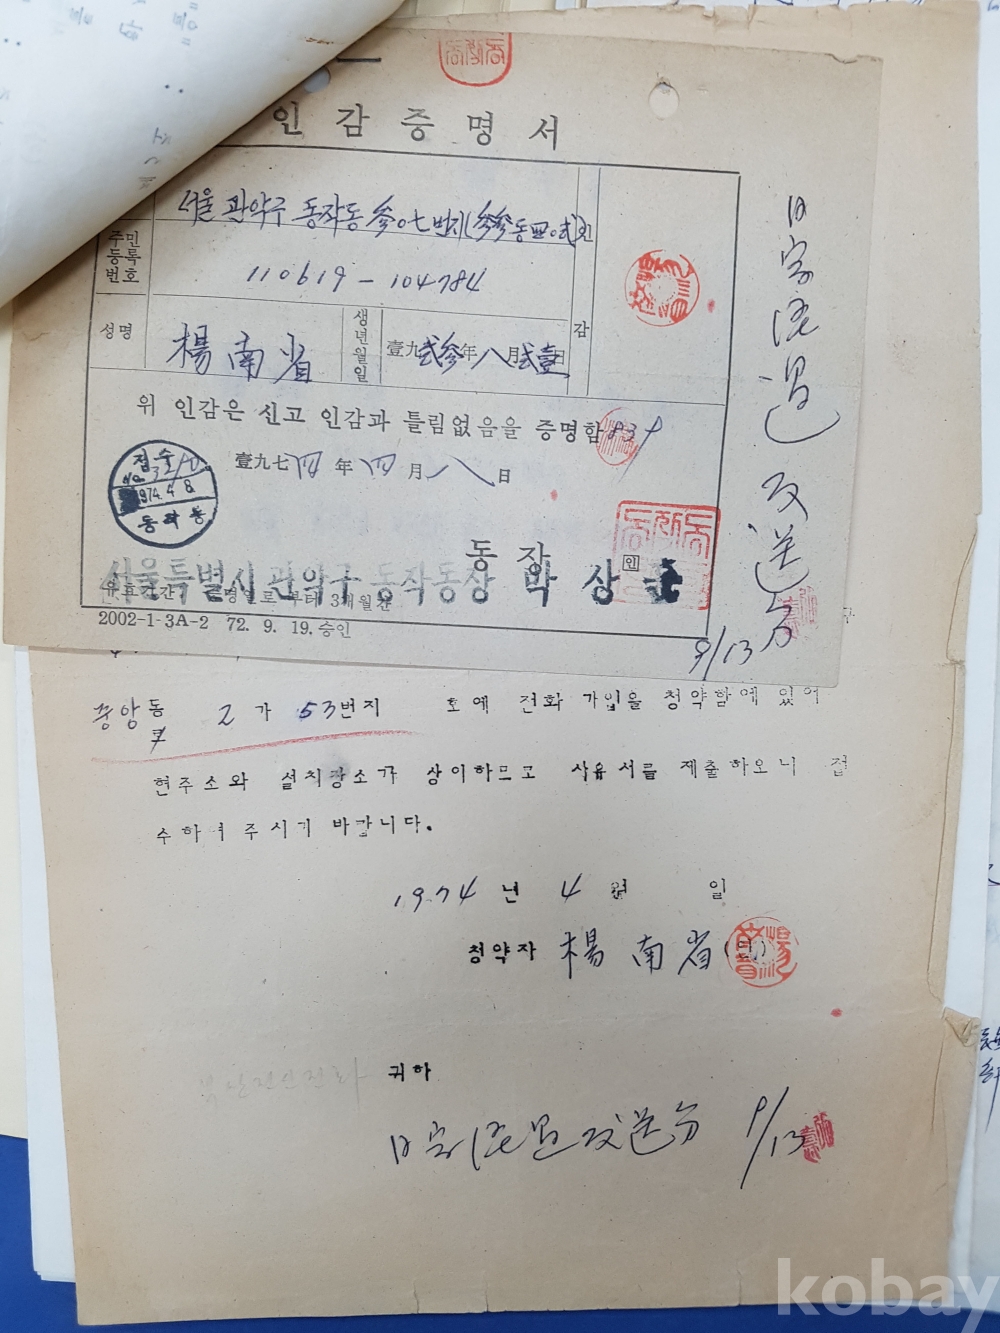 인감증명서
서울 관악구 동작동 参〇七번지(参参동四〇弐)
주민등록번호
110619-104784
성명
楊南省
생년월일
壹九弐参年八月弐壹日
감
위 인감은 신고 인감과 틀림없음을 증명함 839
壹九七四年四月八日
접수
No.
1974.4.8.
동작동
동장
인
서울특별시 관악구 동작동장 박상
유효기간 증명일로부터 3개월간
2002-1-3A-2 72. 9. 19. 승인
日字経過 反送分
9/13
중앙동 2가 53번지 호에 전화 가입을 청약함에 있어
현주소와 설치장소가 상이하므로 사유서를 제출하오니 접
수하여 주시기 바랍니다.
1974년 4월 일
청약자 楊南省 (인)
귀하
日字経過反送分 9/13
kobay